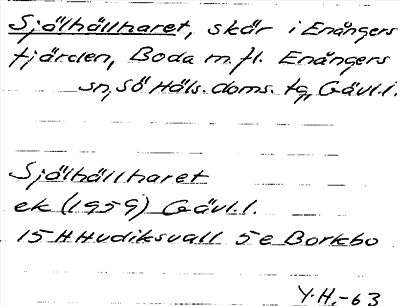 Själhällharet, skär i Enångers
fjärden, Boda m.fl. Enångers
sn, Sö Häls. doms. tg, Gävl.l.
Själhällharet
ek (1959) Gävl.l.
15 H Hudiksvall 5 e Borkbo
Y.H.-63